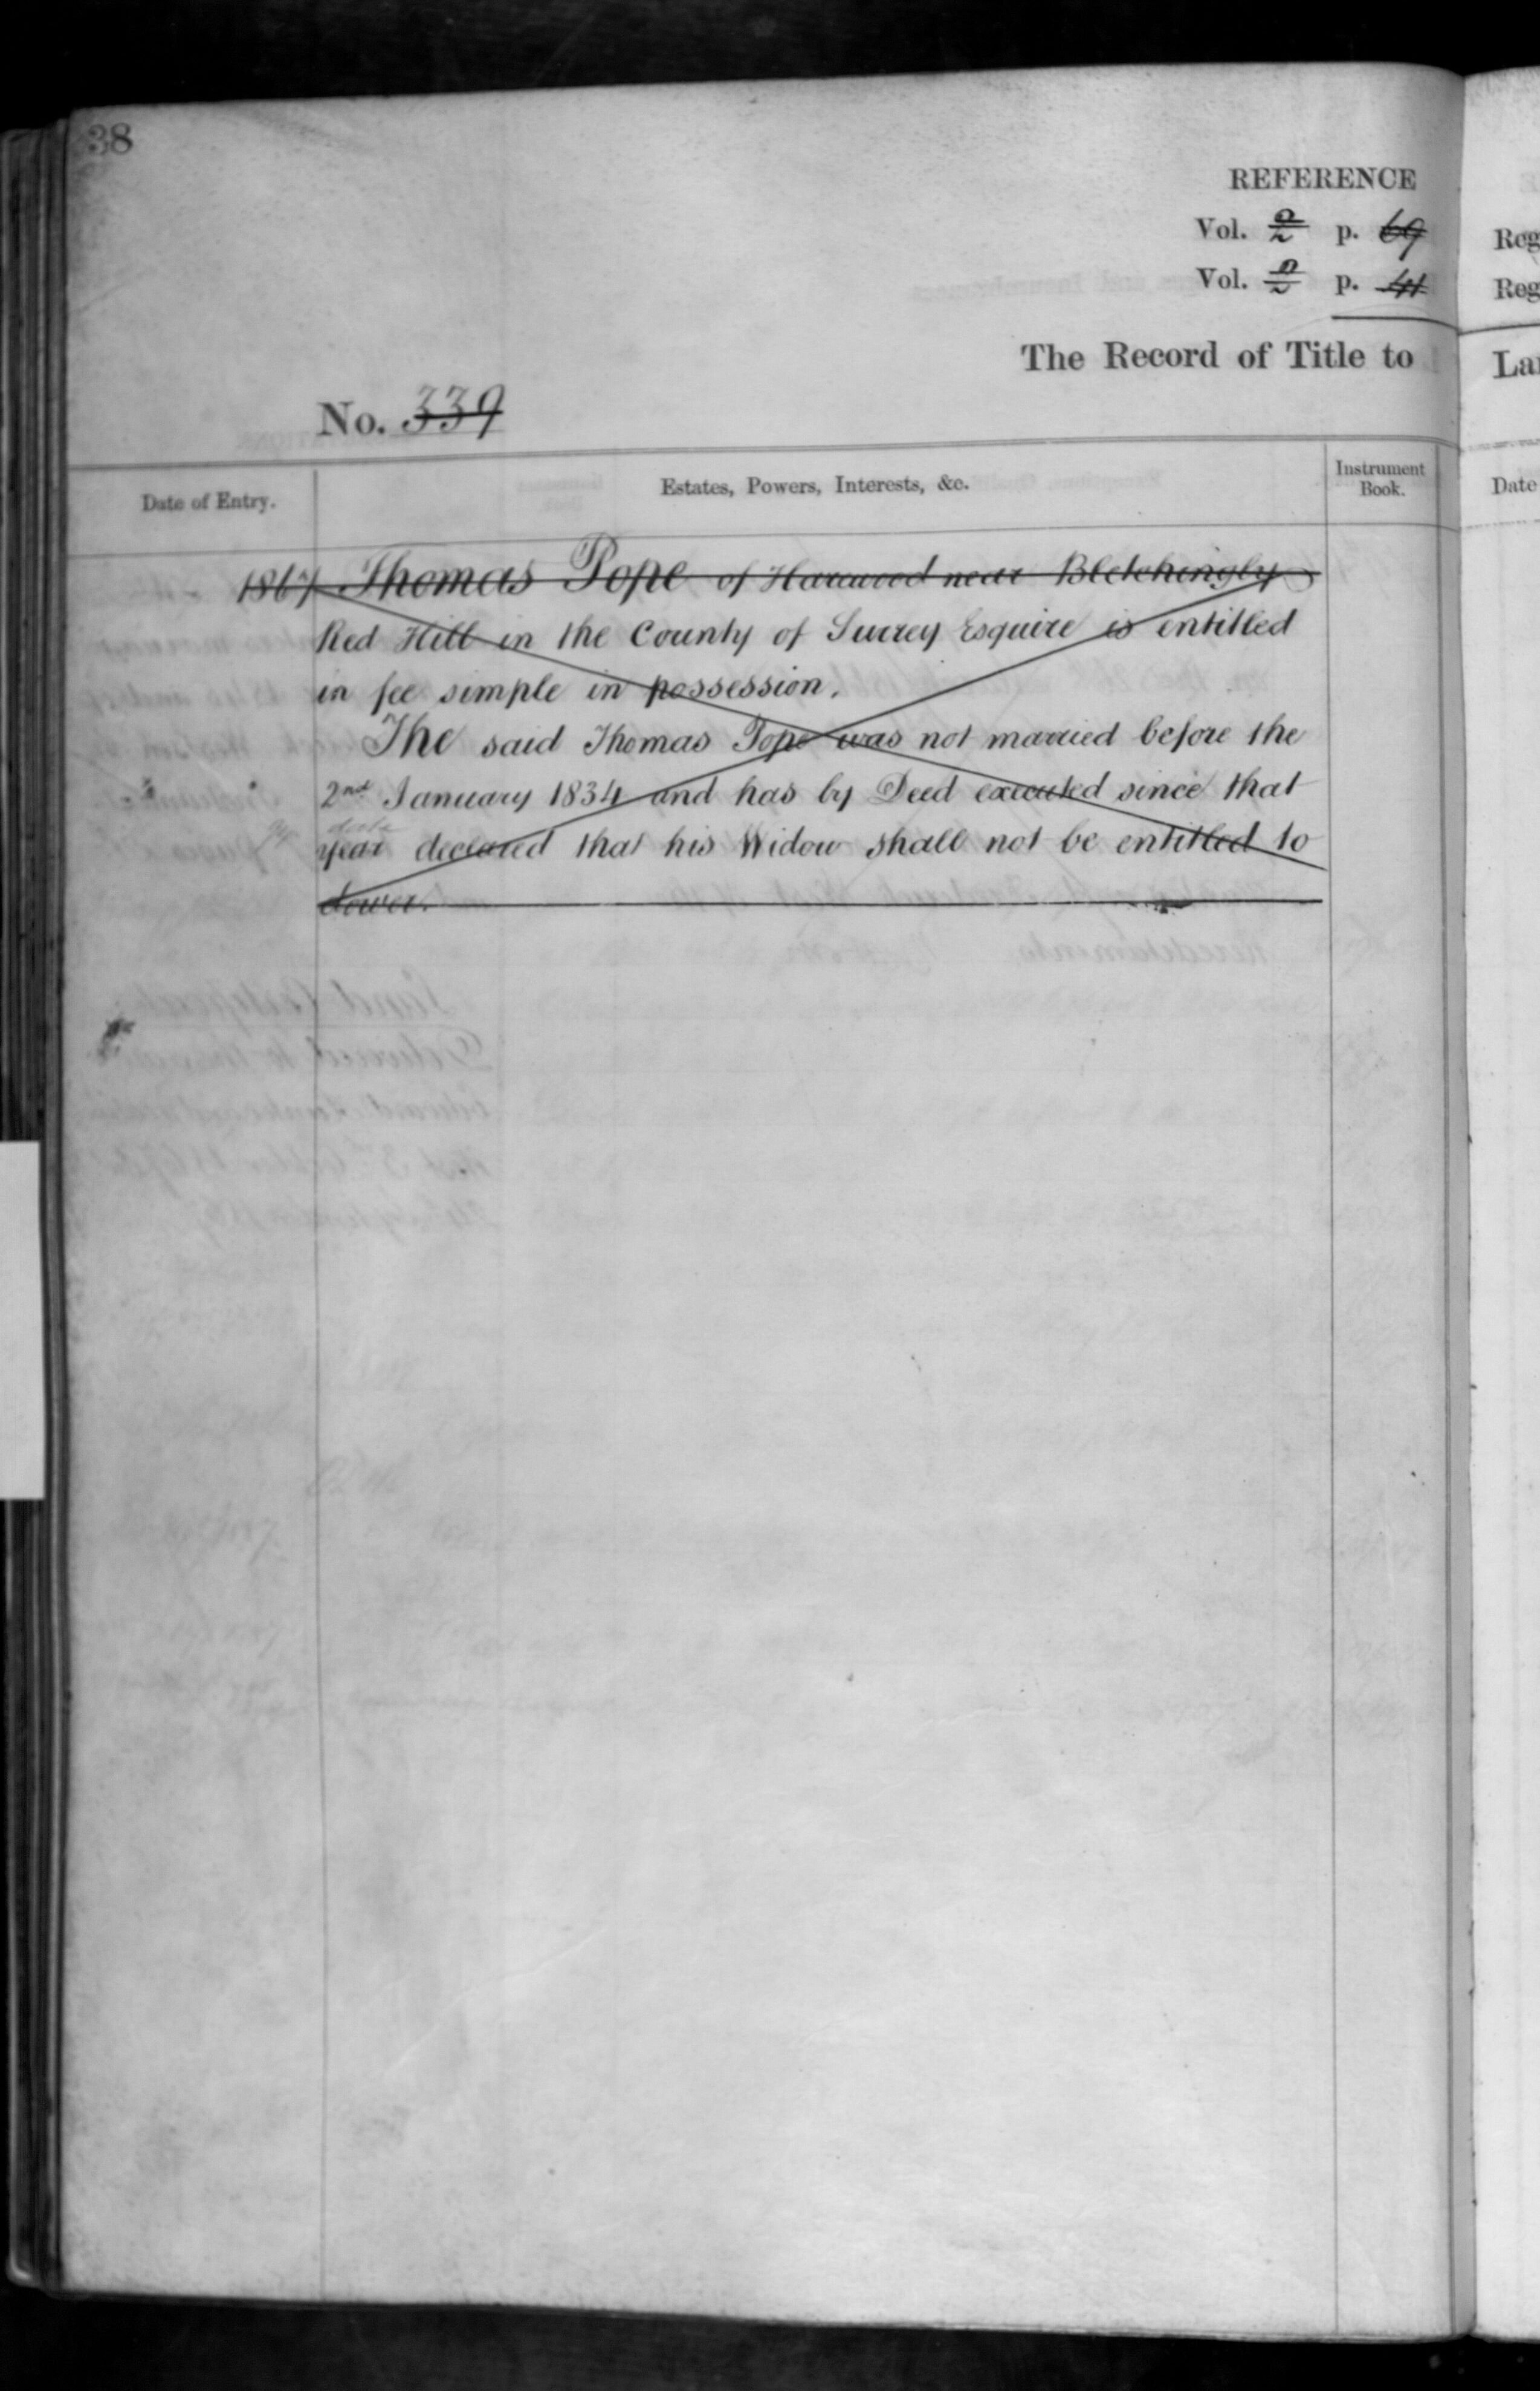 38
REFERENCE
Vol. 2 p. 69
Vol. 2 p. 41
The Record of Title to
No. 339
Date of Entry.
Estates, Powers, Interests, &c.
Instrument Book.
1867 Thomas Pope of Harewood near Bletchingly
Red Hill in the County of Surrey Esquire is entitled
in fee simple in possession.
The said Thomas Pope was not married before the
2nd January 1834 and has by Deed executed since that
date
year declared that his Widow shall not be entitled to
dower.
Reg
Reg
La
Date